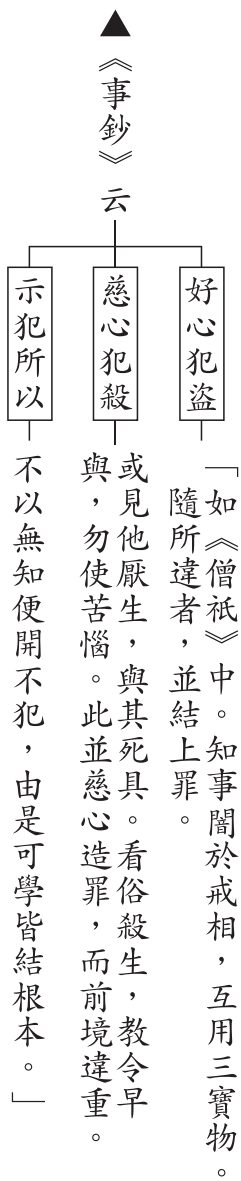 ▲《事鈔》云
好心犯盜
「如《僧祇》中。知事闇於戒相，互用三寶物。
隨所違者，並結上罪。
慈心犯殺
或見他厭生，與其死具。看俗殺生，教令早
與，勿使苦惱。此並慈心造罪，而前境違重。
示犯所以
不以無知便開不犯，由是可學皆結根本。」